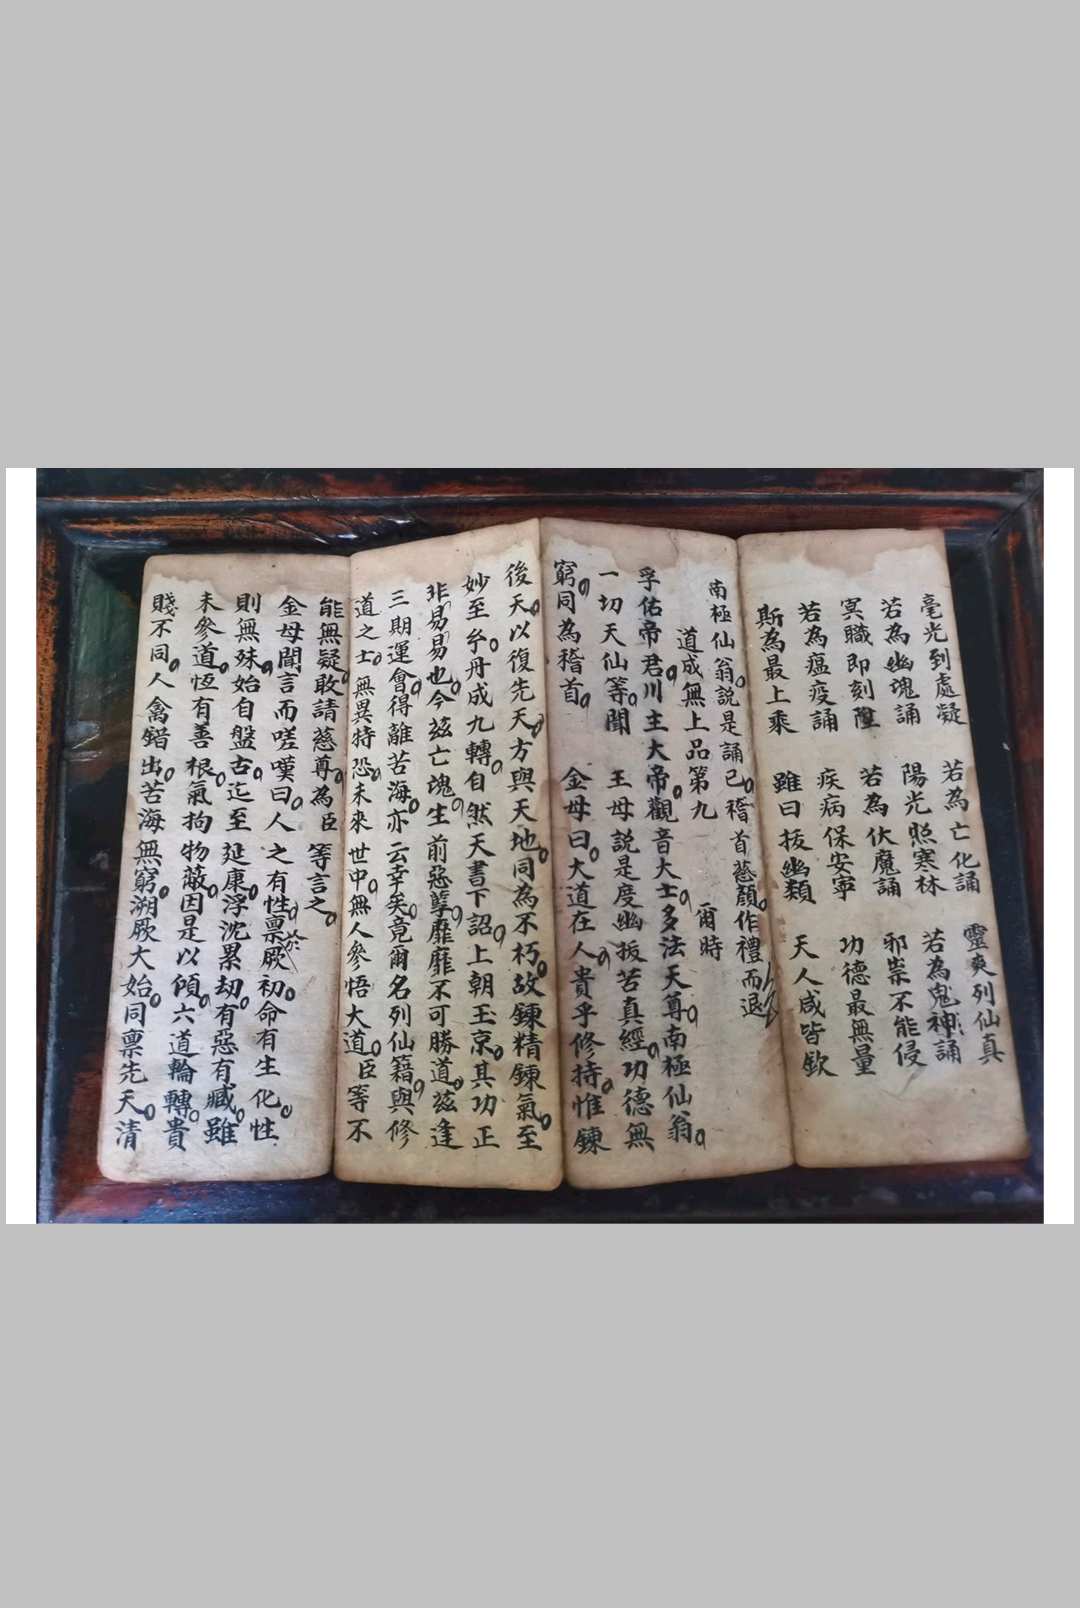 毫光到處凝　若為亡化誦　靈爽列仙真
若為幽魂誦　陽光照寒林　若為鬼神誦
冥職即刻陞　若為伏魔誦　邪祟不能侵
若為瘟疫誦　疾病保安寧　功德最無量
斯為最上乘　雖曰拔幽類　天人咸皆欽
南極仙翁說是誦已稽首慈顏作禮而退
道成無上品第九　爾時
孚佑帝君川主大帝觀音大士多法天尊南極仙翁
一切天仙等聞　王母說是度幽拔苦真經功德無
窮同為稽首　金母曰大道在人貴乎修持惟鍊
後天以復先天方與天地同為不朽故鍊精鍊氣至
妙至𠫤丹成九轉自然天書下詔上朝玉京其功正
非易易也今茲亡魂生前惡孽靡靡不可勝道茲逢
三期運會得離苦海亦云幸矣竟爾名列仙籍與修
道之士無異特恐未來世中無人參悟大道臣等不
能無疑敢請慈尊為臣等言之
金母聞言而嗟嘆曰人之有性禀於厥初命有生化性
則無殊始自盤古迄至延康浮沈累劫有惡有臧雖
未參道恆有善根氣拘物蔽因是以傾六道輪轉貴
賤不同人禽錯出苦海無窮溯厥大始同禀先天清